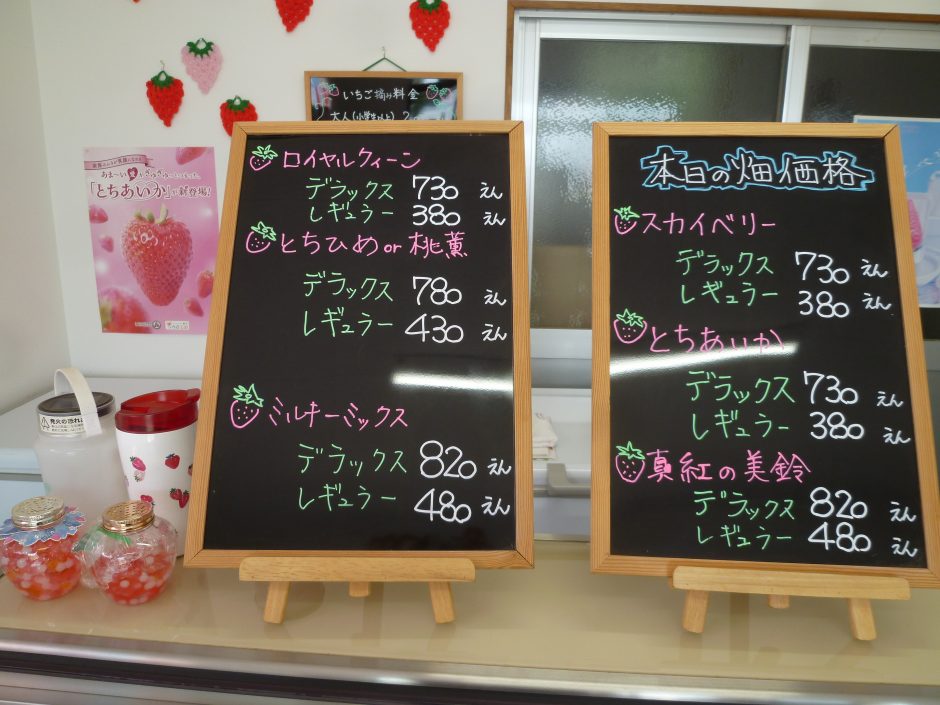 いちご摘み料金
大人(小学生以上)
あま~い愛がぎゅぎゅ~っとつまった。
「とちあいか」新登場!
ロイヤルクィーン
デラックス 730 えん
レギュラー 380 えん
とちひめor桃薫
デラックス 780 えん
レギュラー 430 えん
ミルキーミックス
デラックス 820 えん
レギュラー 480 えん
本日の畑価格
スカイベリー
デラックス 730 えん
レギュラー 380 えん
とちあいか
デラックス 730 えん
レギュラー 380 えん
真紅の美鈴
デラックス 820 えん
レギュラー 480 えん